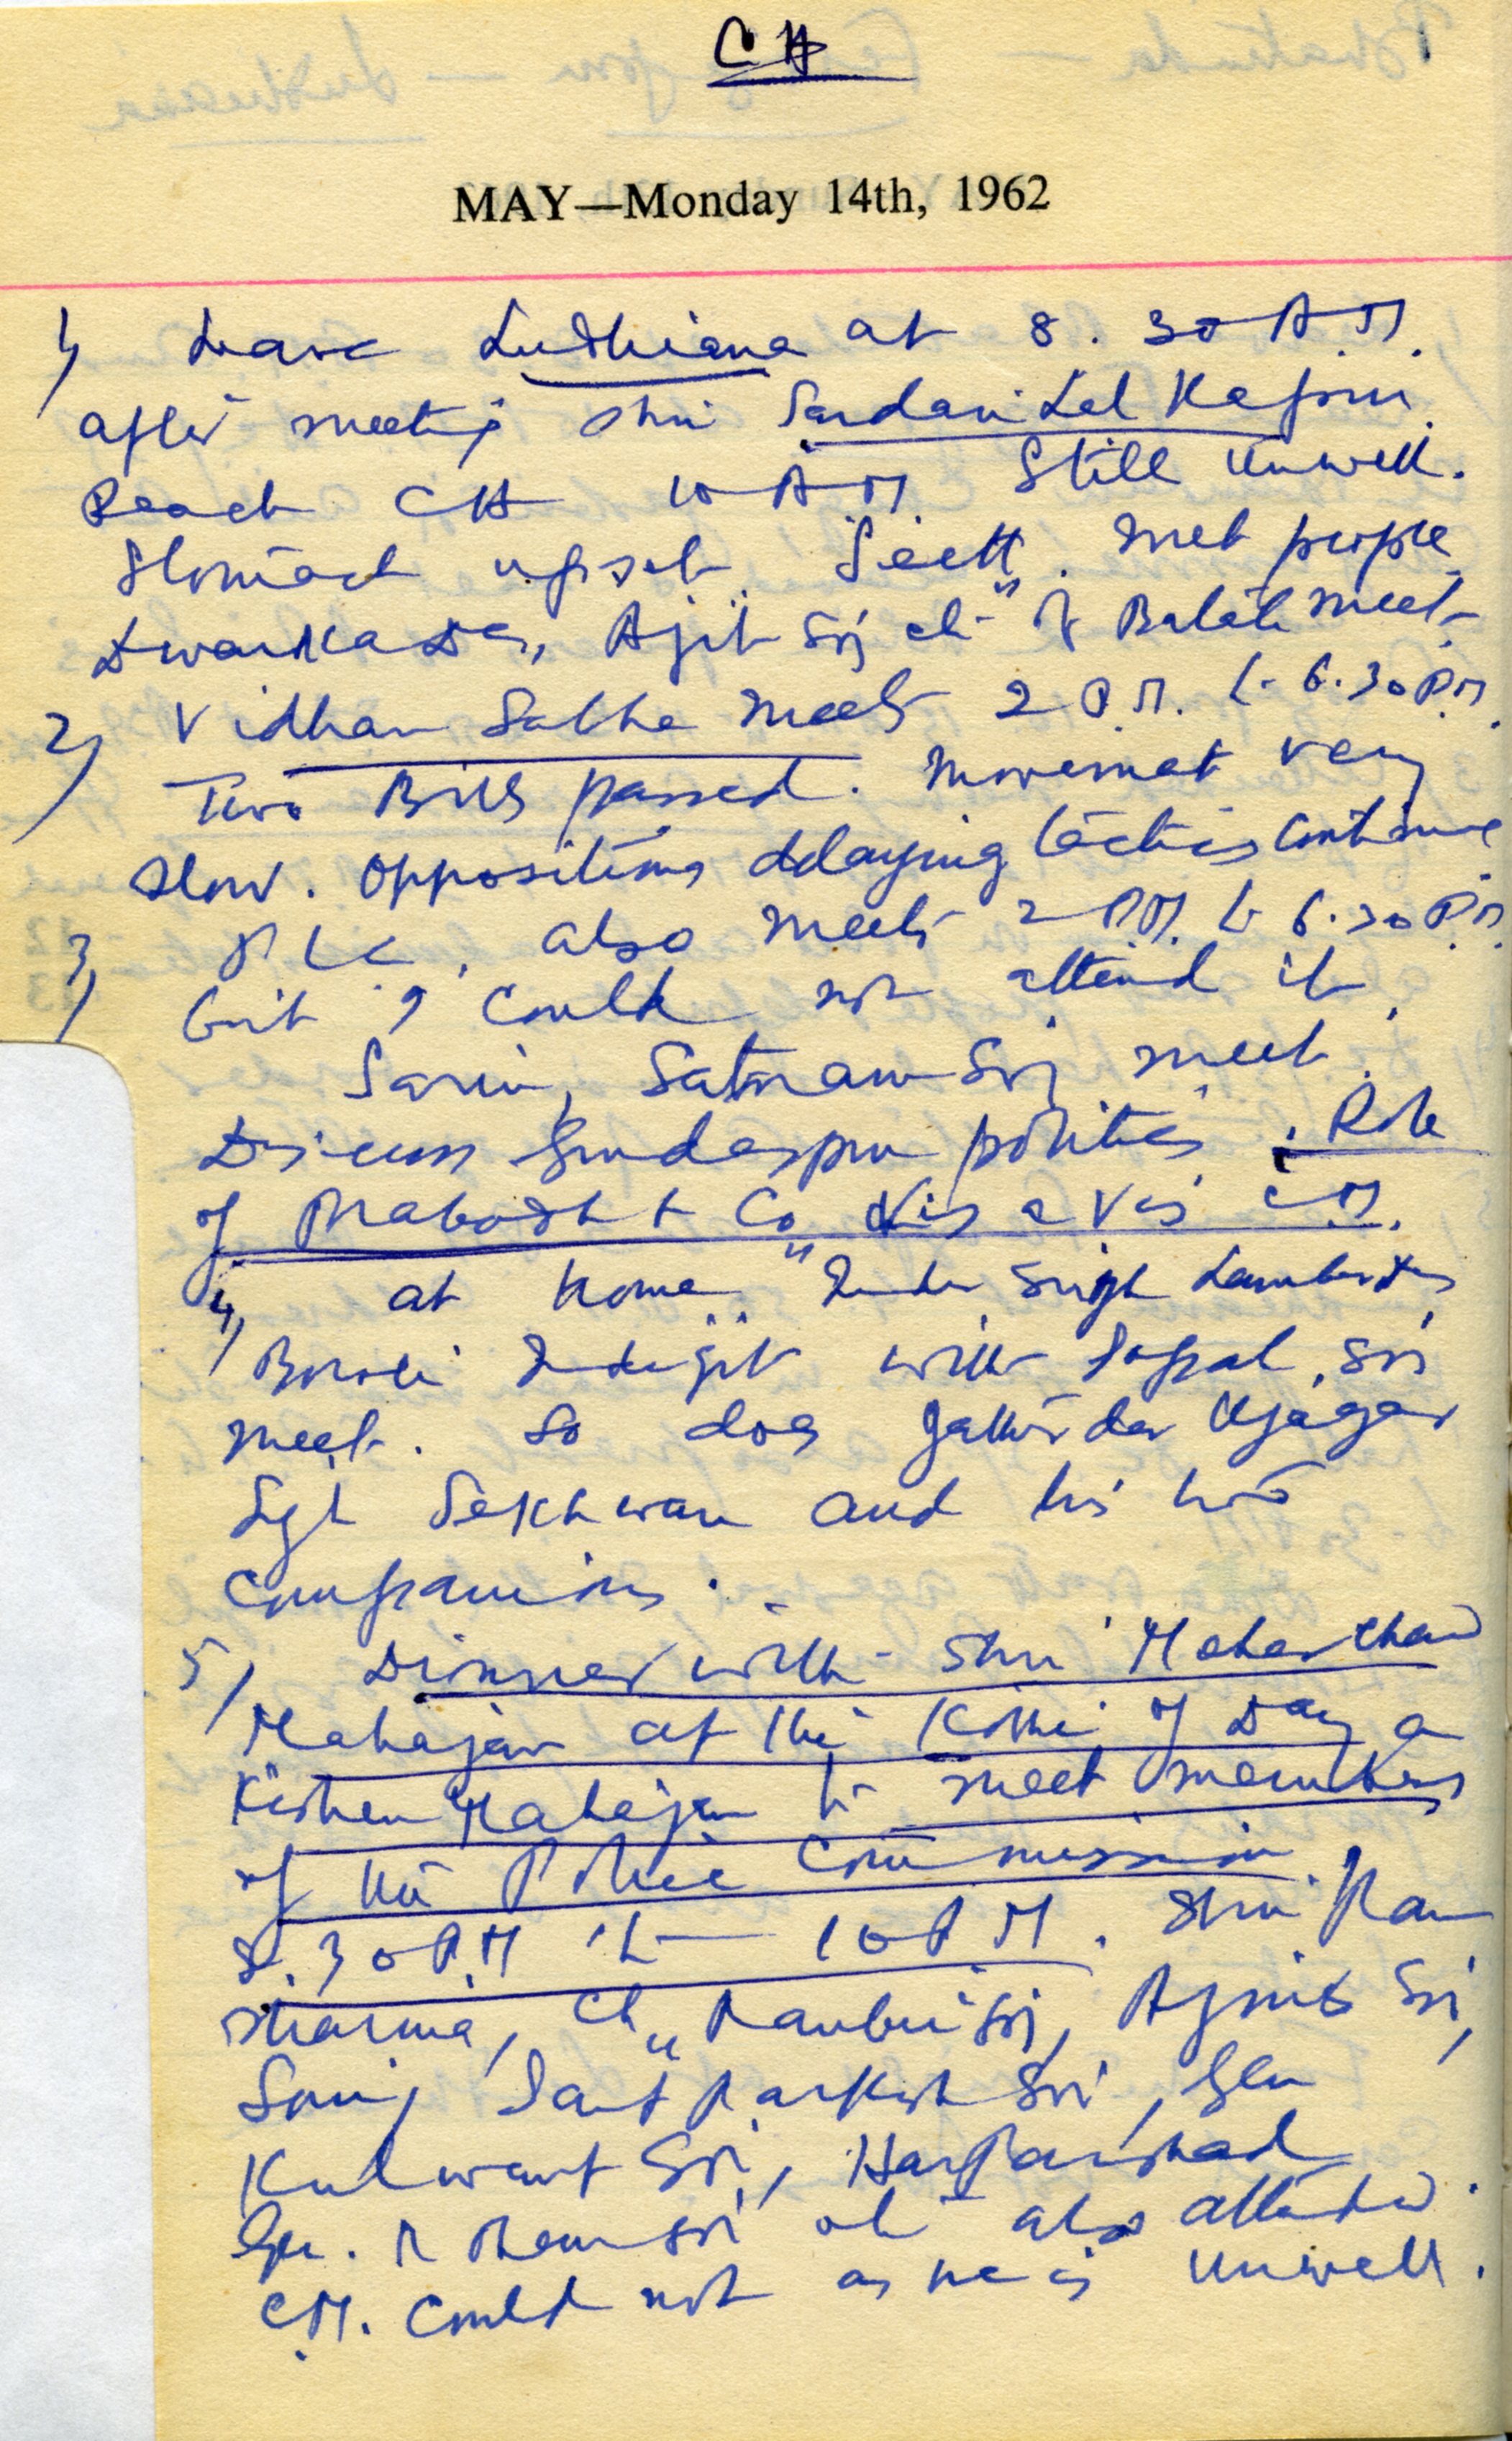 CH
MAY—Monday 14th, 1962
1) Leave Ludhiana at 8.30 A.M.
after meeting Shri Sardari Lal Kapur.
Reach CH 10 A.M. Still unwell.
Stomach upset. Met people
Dwarka Das, Ajit Sgj etc of Batala meet.
2) Vidhan Sabha meets 2 P.M. to 6.30 P.M.
Two Bills passed. Movement very
slow. Oppositions delaying tactics continue
3) also meets 2 P.M. to 6.30 P.M.
but I could not attend it.
Sarin, Satnam Sgj meet.
Discuss Gurdaspur politics. Role
of Prabodh & Co vis a vis C.M.
4) at home Inder Singh
Inderjit with Gopal Sgj
meet. So does Jathedar Ujagar
Sgh Sekhwan and his two
companions.
5) Dinner with Shri Meharchand
Mahajan at the Kothi of Daya
Kishen Mahajan to meet members
of the Police Commission
8.30 P.M to 10 P.M. Shri Ram
Sharma, Ch Ranbir Sgj, Ajmer Sgj,
Sant Parkash Sgj, Gen
Kulwant Sgj, Harparshad
also attended.
C.M. could not as he is unwell.